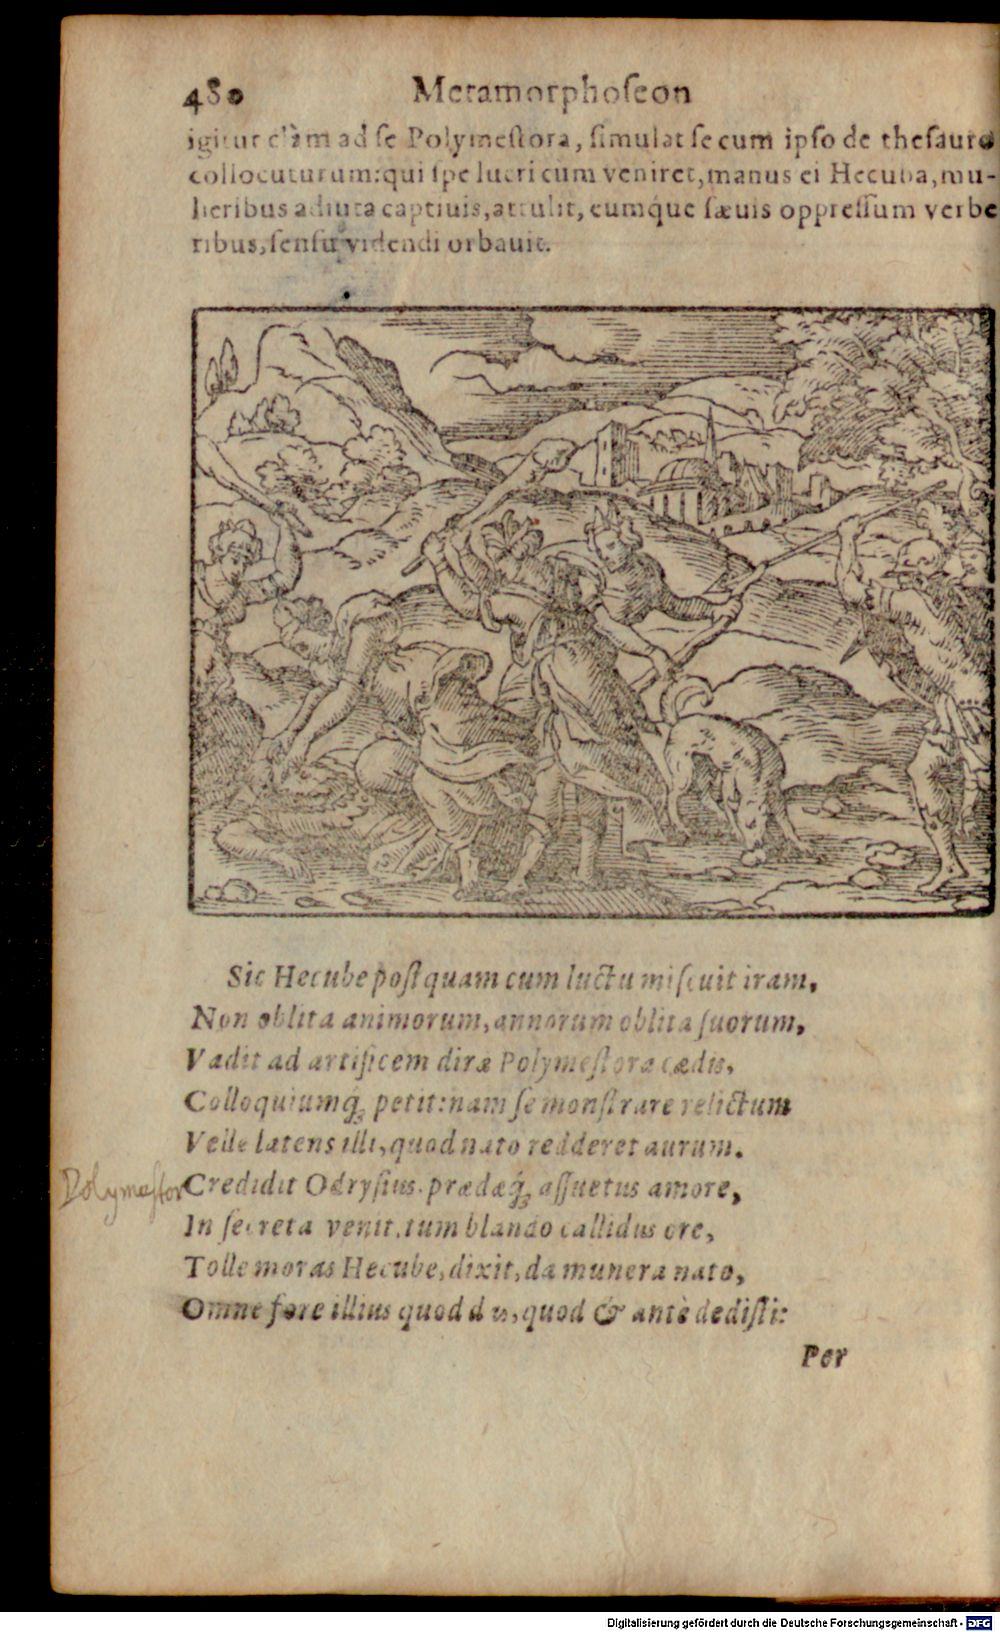 480 Metamorphoſeon
igitur clàm ad ſe Polymeſtora, ſimulat ſe cum ipſo de theſauro
collocuturum: qui ſpe lucri cum veniret, manus ei Hecuba, mu-
lieribus adiuta captiuis, attulit, eumque ſæuis oppreſſum verbe
ribus, ſenſu videndi orbauit.
Sic Hecube poſtquam cum luctu miſcuit iram,
Non oblita animorum, annorum oblita ſuorum,
Vadit ad artificem diræ Polymeſtora cædis,
Colloquiumq́; petit: nam ſe monſtrare relictum
Velle latens illi, quod nato redderet aurum.
Polymeſtor
Credidit Odryſius. prædæq́; aſſuetus amore,
In ſecreta venit. tum blando callidus ore,
Tolle moras Hecube, dixit, da munera nato,
Omne fore illius quod d s, quod & antè dediſti:
Per
Digitalisierung gefördert durch die Deutsche Forschungsgemeinschaft - DFG